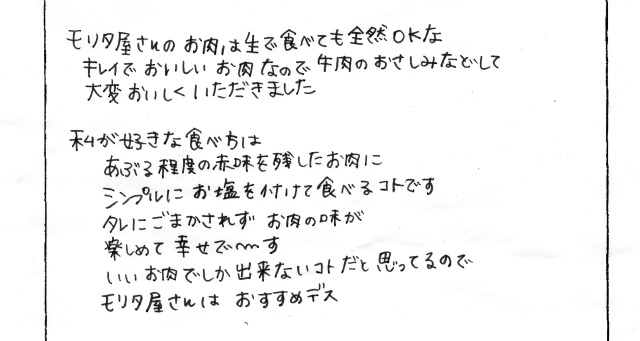 モリタ屋さんのお肉は生で食べても全然OKな
キレイでおいしいお肉なので牛肉のおさしみなどして
大変おいしくいただきました
私が好きな食べ方は
あぶる程度の赤味を残したお肉に
シンプルにお塩を付けて食べるコトです
タレにごまかされずお肉の味が
楽しめて幸せで〜〜す
いいお肉でしか出来ないコトだと思ってるので
モリタ屋さんはおすすめデス